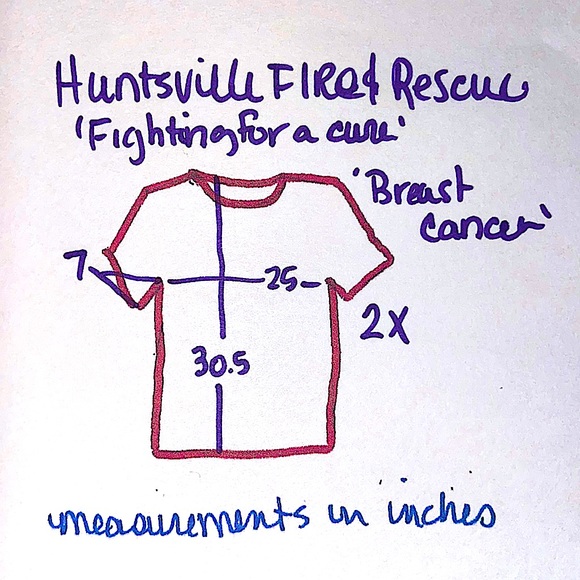 Huntsville FIRE & Rescue
'Fighting for a cure'
'Breast
cancer'
7
25
2X
30.5
measurements in inches